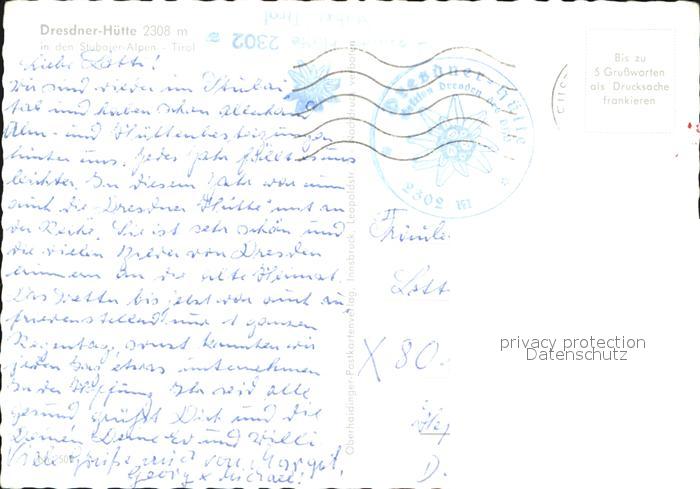 Dresdner-Hütte 2308 m
in den Stubaier-Alpen - Tirol
Liebe Lotti!
Wir sind wieder im Stubai-
tal und haben schon allerhand
Alm- und Hüttenbesteigungen
hinter uns. Jedes Jahr fällt es uns
leichter. In diesem Jahr war nun
auch die "Dresdner Hütte" mit an
der Reihe. Sie ist sehr schön und
die vielen Bilder von Dresden
erinnern an die alte Heimat.
Das Wetter bis jetzt war auch zu-
friedenstellend nur 1 ganzen
Regentag, sonst konnten wir
jeden Tag etwas unternehmen
In der Hoffnung Ihr seid alle
gesund grüßt Dich und die
Deinen Deine Ev und Willi
Viele Grüße auch von Margit,
Georg + Michael!
Oberhaidinger-Postkartenverlag, Innsbruck, Leopoldstr.
2302
Tirol
Dresdner-Hütte
Sektion Dresden des
2302
Bis zu
5 Grußworten
als Drucksache
frankieren
Fräule
Lott
X 80
D.
privacy protection
Datenschutz